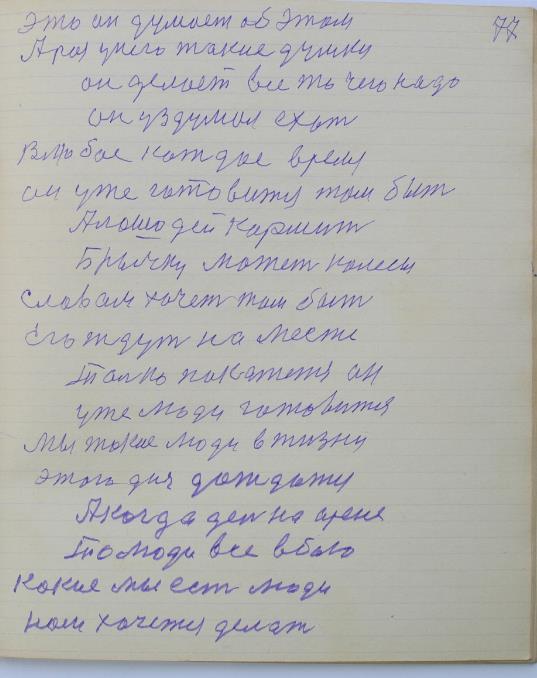 Это он думает об Этом 77
А раз у него такие думки
он делает все то чего надо
он уздумал ехат
В любое каждое время
он уже готовится там быт
А лошадей кармит
Брычку мажет колесы
словам хочет там быт
Его ждут на месте
Толко покажется он
уже люди готовится
Мы такие люди в жизни
этого дня дождомся
А когда ден на арене
То люди все в
Какие мы ест люди
нам хочется делат